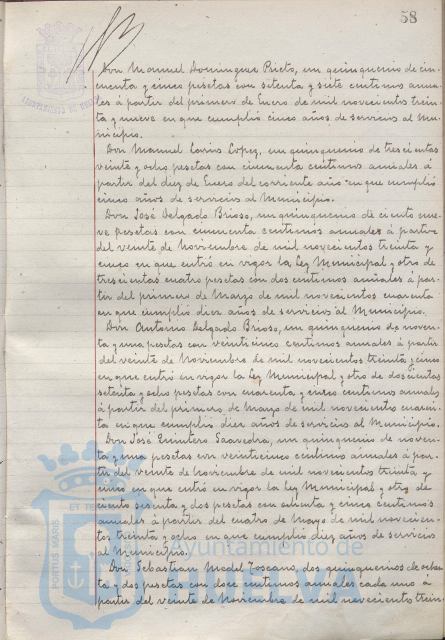 58
Don Manuel Dominguez Prieto, un quinquenio de cin-
cuenta y cinco pesetas con setenta y siete centimos anua-
les á partir del primero de Enero de mil novecientos trein-
ta y nueve en que cumplió cinco años de servicios al Mu-
nicipio.
Don Manuel López, un quinquenio de trescientas
veinte y ocho pesetas con cincuenta centimos anuales á
partir del diez de Enero del corriente año en que cumplió
cinco años de servicios al Municipio.
Don José Delgado Brioso, un quinquenio de ciento nue-
ve pesetas con cincuenta centimos anuales á partir
del veinte de Noviembre de mil novecientos treinta y
cinco en que entró en vigor la Ley Municipal y otro de
trescientas cuatro pesetas con dos centimos anuales á par-
tir del primero de Marzo de mil novecientos cuarenta
en que cumplió diez años de servicios al Municipio.
Don Antonio Delgado Brioso, un quinquenio de noven-
ta y una pesetas con veinticinco centimos anuales á partir
del veinte de Noviembre de mil novecientos treinta y cinco
en que entró en vigor la Ley Municipal y otro de doscientas
setenta y ocho pesetas con cuarenta y cinco centimos anuales
á partir del primero de Marzo de mil novecientos cuaren-
ta en que cumplió diez años de servicios al Municipio.
Don José Quintero Saavedra, un quinquenio de noven-
ta y una pesetas con veinticinco centimos anuales á par-
tir del veinte de noviembre de mil novecientos treinta y
cinco en que entró en vigor la Ley Municipal y otro de
ciento sesenta y dos pesetas con setenta y cinco centimos
anuales á partir del cuatro de Mayo de mil novecien-
tos treinta y ocho en que cumplió diez años de servicios
al Municipio.
Don Sebastian Medel Toscano, dos quinquenios de ochen-
ta y dos pesetas con doce centimos anuales cada uno á
partir del veinte de Noviembre de mil novecientos trein-
PORTUS MARIS
ET TE
Ayuntamiento de
HUELVA